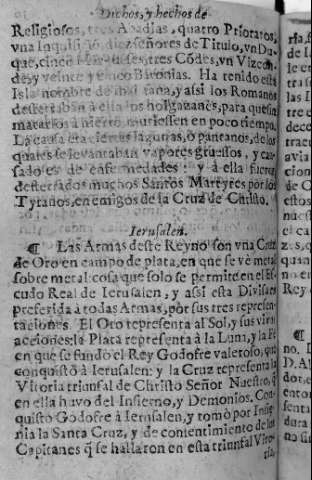 Dichos, y hechos de
Religiosos, tres Abadias, quatro Prioratos,
vna Inquisició, diez señores de Titulo, vn Du
que, cinco Marqueses, tres Cõdes, vn Vizcon
de, y veinte y cinco Baronias. Ha tenido esta
Isla nombre de mal sana, y assi los Romanos
desterrauan à ella los holgazanes, para que sin
matarlos à hierro, muriessen en poco tiempo.
La causa era ciertas lagunas, ò pantanos, de los
quales se leuantaban vapores gruessos, y cau-
sadores de enfermedades: y à ella fueron
desterrados muchos Santos Martyres por los
Tyranos, enemigos de la Cruz de Christo.
Ierusalen.
¶ Las Armas deste Reyno son vna Cruz
de Oro en campo de plata, en que se vè metal
sobre metal: cosa que solo se permite en el Es-
cudo Real de Ierusalen, y assi esta Diuisa es
preferida à todas Armas, por sus tres represen-
taciones. El Oro representa al Sol, y sus
la Plata representa à la Luna, y la Fè
en que se fundò el Rey Godofre valeroso, que
conquistò à Ierusalen: y la Cruz representa la
Vitoria triunfal de Christo Señor Nuestro, q̃
en ella huvo del Infierno, y Demonios. Con-
quistò Godofre à Ierusalen, y tomò por Insig-
nia la Santa Cruz, y de consentimiento de los
Capitanes q̃ se hallaron en esta triunfal Vito-
ria,